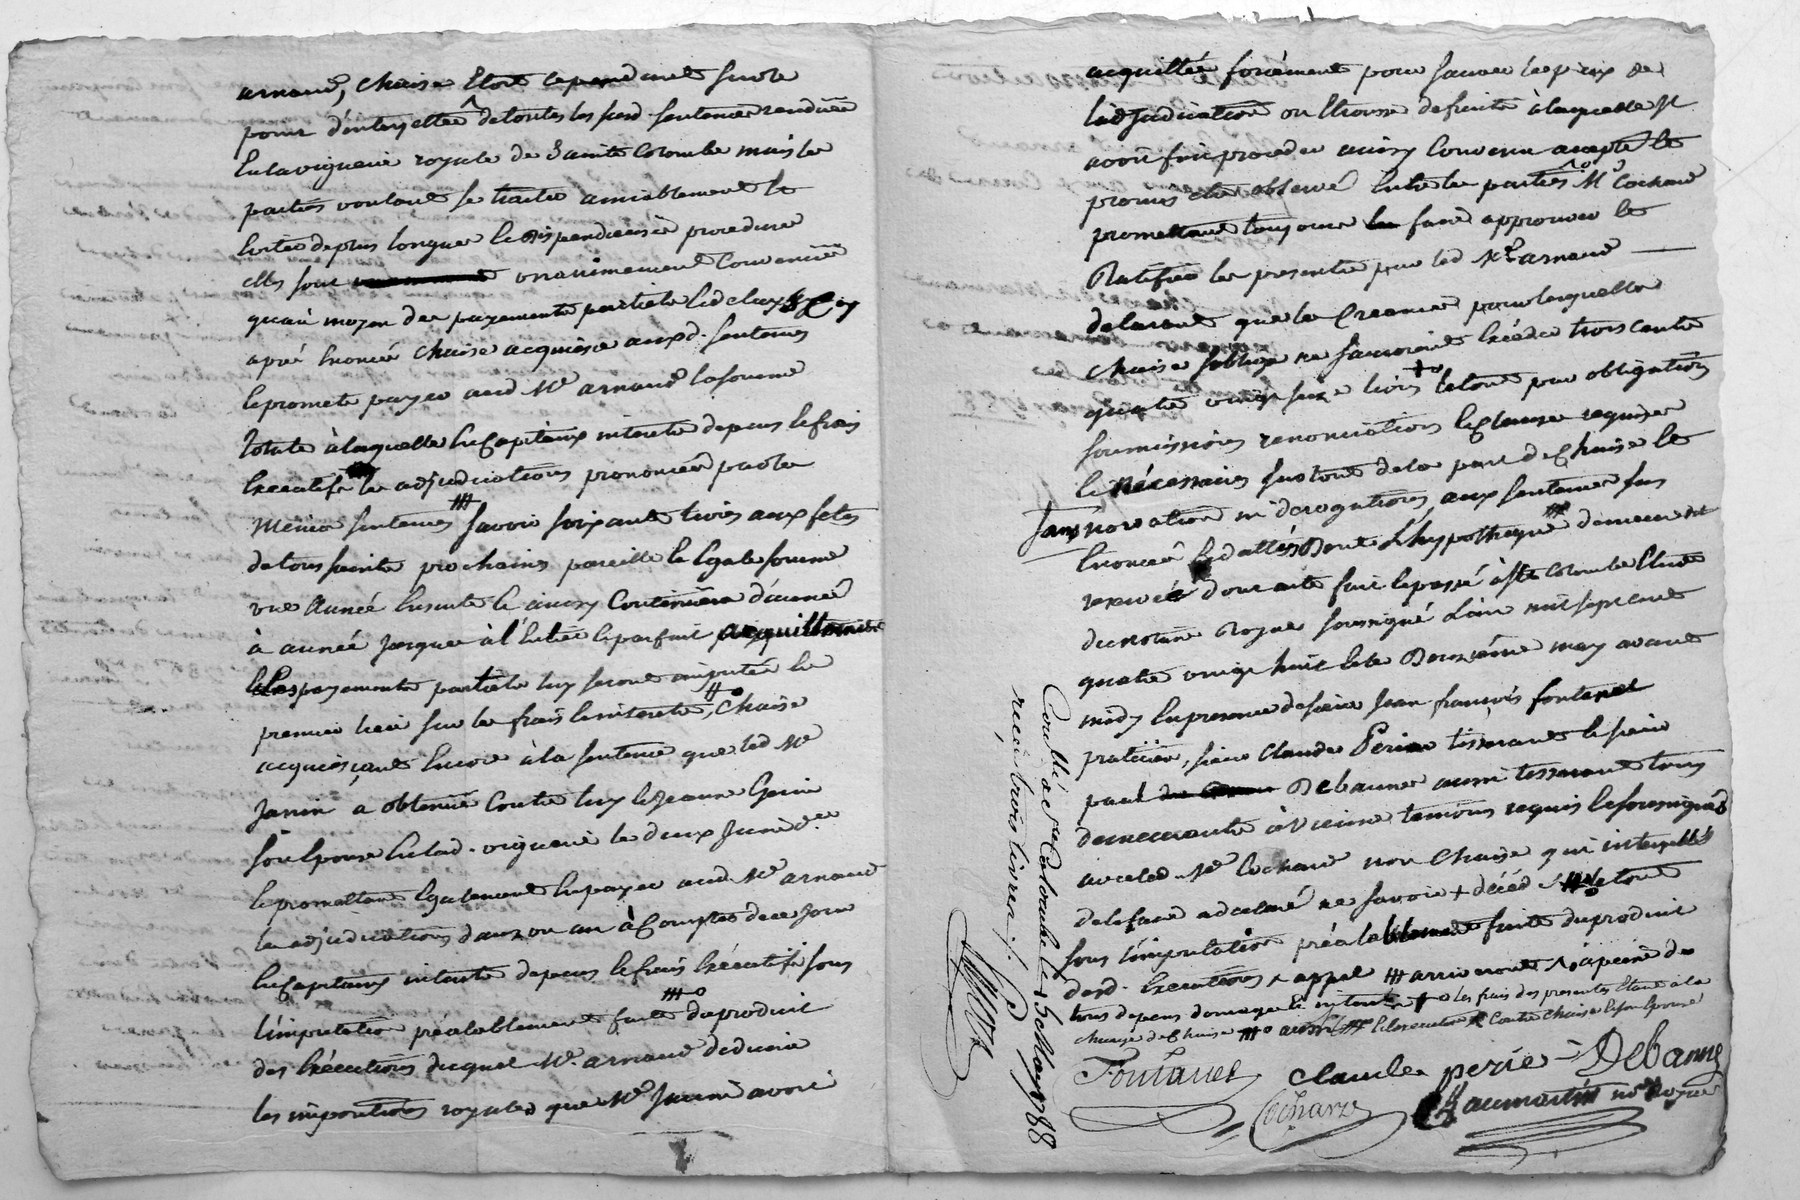 arnaud, chaise Etoit cependant sur le
point d'interjetter de toutes les susd. sentences rendues
En la viguerie royale de Sainte Colombe mais les
parties voulant se traiter amiablement Et
Eviter de plus longue Et dispendieuse procedure
elles sont unanimement Convenues
qu'au moyen des payements partiels
aprés Enoncés chaise acquiesce auxd. sentences
Et promet payer aud. Me arnaud la somme
totale à laquelle les Capitaux interets depens Et frais
Executifs Et adjudications prononcées par les
mêmes sentences savoir soixante livres aux fetes
de toussaints prochaines pareille Et Egale somme
une Année Ensuite Et ainsy Continuera d'année
à année jusques à l'Entier Et parfait acquittement
Les payements partiels luy seront imputés En
premier lieu sur les frais Et interets, chaise
acquiesçant Encore à la sentence que led Me
Janin a obtenue Contre luy Et Jeanne Gerin
son Epouse En lad. viguerie le deux Juin der
Et promettant Egalement En payer aud. Me arnaud
les adjudications dans un an à Compter de ce Jour
En Capitaux interets depens Et frais Executifs sous
l'imputation préalablement faite du produit
des Exécutions duquel Me arnaud déduira
les impositions royales que Me Janin avoit
acquittées forcément pour sauver le prix de
l'adjudication ou Etrousse de fruits à laquelle il
avoit fait proceder ainsy Convenu accepté Et
promis Etre observé Entre les parties Me Cochard
promettant toujours faire approuver Et
Ratifier les presentes par led Me arnaud
declarant que les Creances pour lesquelles
chaise s'oblige ne sauroient Excéder trois cents
quatre vingt seize livres Et tout par obligations
soumissions renonciations Et clauses requises
Et nécessaires surtout de la part de Chaise Et
sans novation ni derogations aux sentences sus
Enoncées Et dattées Dont L'hypotheque demeure
reservée Dont acte fait Et passé à Ste Colombe Etude
du notaire Royal soussigné L'an mil sept cent
quatre vingt huit Et le Douzième may avant
midy En presence de sieur Jean françois fontanet
praticien, sieur Claude Perier tisserand Et sieur
paul Debanne aussi tisserand tous
demeurants à Vienne temoins requis Et soussignés
avec led. Me Cochard non Chaise qui interpellé
de le faire a declaré ne savoir + décéd Et tout
sous l'imputation préalablement faite du produit
desd. Executions ^ appel arriveront ^ à peine de
tous depens domage Et interets Les frais des presentes Etant à la
charge de Chaise aussi Contre chaise Et son Epouse
Fontanet Claude perier Debanne
Cochard Chaumartin no Royal
Coullé à Ste Colombe le 13 May 1788
reçu trois livres